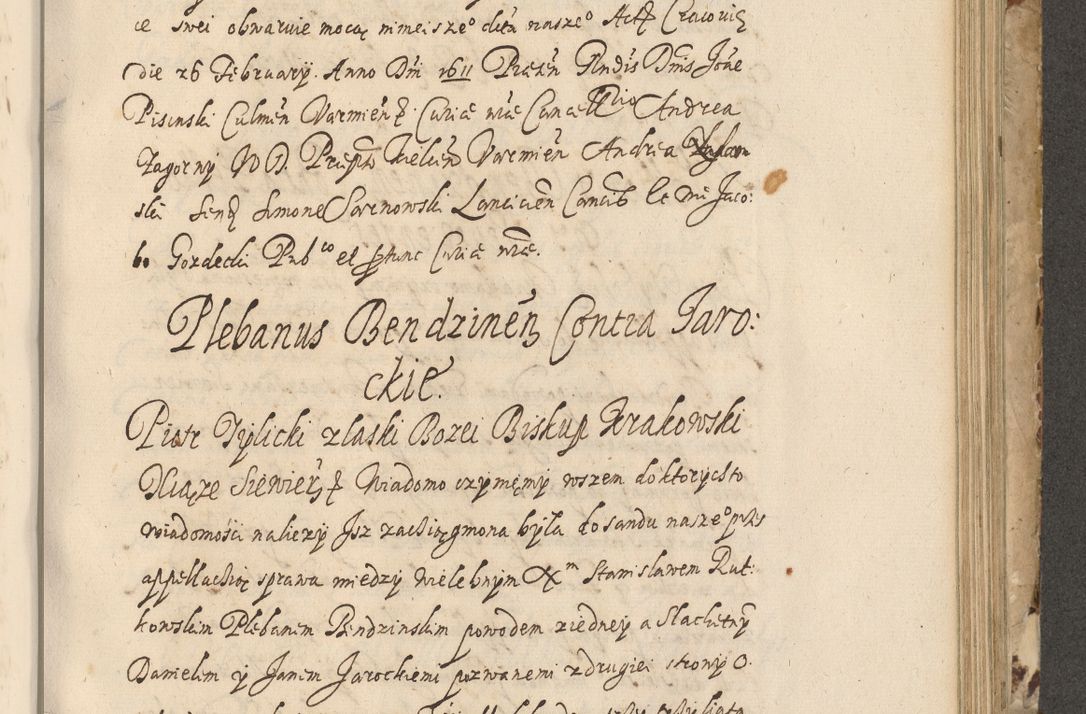 ce swei obwaruie mocą ninieisze⁰ listu nasze⁰ Act Cracoviæ
die 26 February. Anno Dni 1611 Præsen Rndis Dnis Joñe
Pisinski Culmen Varmien Curiæ nræ Cancellrio Andrea
Zagorny ND. Præpto Kielcien Varmien Andrea
ski Simone Sarnowski Lancicien Canc Jaco:
bo Gordecki Pub co et Curiæ nræ.
Plebanus Bendzinen Contra Jaro:
ckie.
Piotr Tylicki zlaski Bozei Biskup Krakowski
Xiąze Siewier Wiadomo czynięmy wszem doktorychto
wiadomości naliezy Isz zachięgmona była dosandu nasze⁰ przes
appellachię sprawa miedzy wielebnym X m Stanislawem Rut:
kowskim Plebanem Bendzinskim powodem ziedney a Slachetny
Danielem y Janem Jarockiemi pozwanemi zdrugiei strony O.